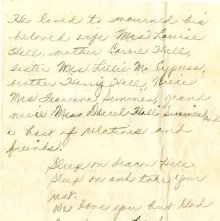 He lived to mourned his
beloved wife Mrs Louise
Hall, mother Carrie Hall,
sister Mrs Lillie Mc Cypress,
brother Harry Hall, Niece
Mrs Francina Simmons, grand
niece Miss Simmons and
a host of relatives and
freinds.
Sleep on Deacon Hall
Sleep on and take your
rest.
We love you but God